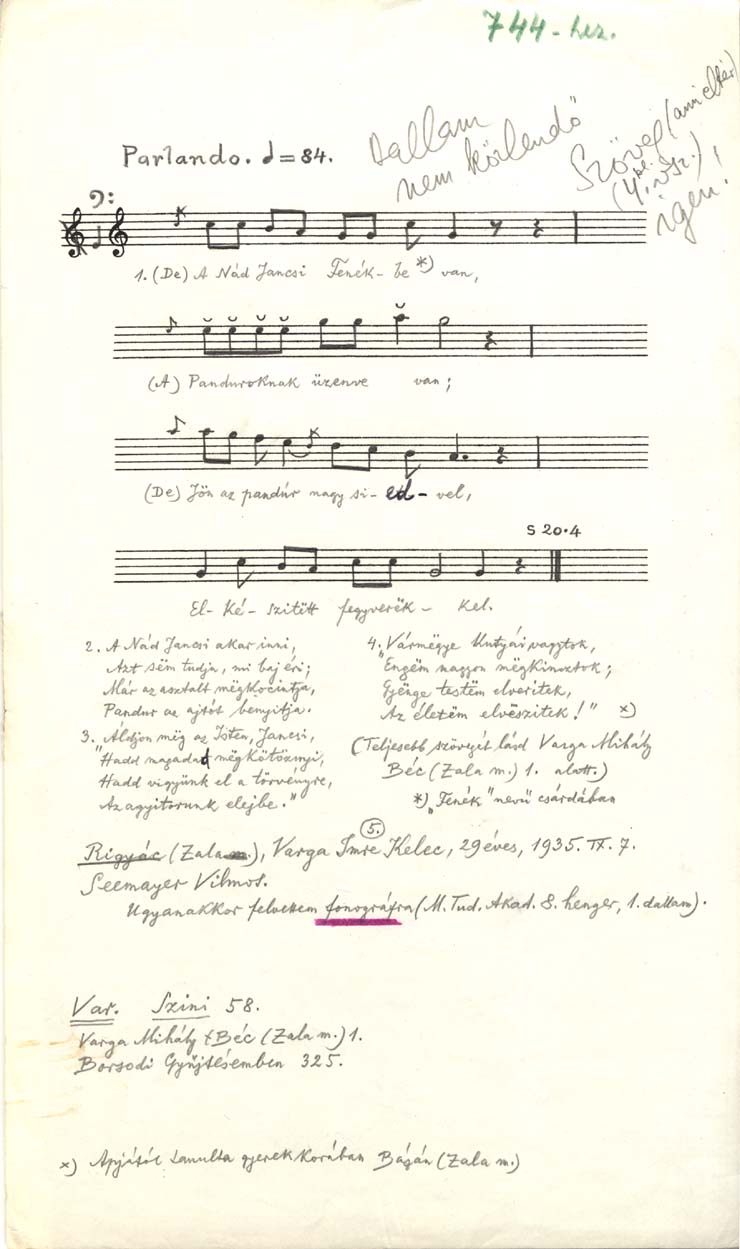 744-hez.
Dallam
nem közlendő
Szöveg (ami eltér)
(4. vsz.)
igen!
Parlando. = 84.
1. (De) A Nád Jancsi Fenék-be *) van,
(A) Panduroknak üzenve van;
(De) Jön az pandúr nagy si-ed-vel,
S 20.4
El-ké-szitëtt fegyverëk-kel.
2. A Nád Jancsi akar inni,
Azt sëm tudja, mi baj éri;
Már az asztalt mëgkocintja,
Pandur az ajtót benyitja.
3. "Áldjon mëg az Isten, Jancsi,
Hadd magadat mëgkötöznyi,
Hadd vigyünk el a törvenyre,
Az agyitorunk elejbe."
4. "Vármëgye kutyái vagytok,
Engëm nagyon mëgkinoztok;
Gyënge testëm elveritek,
Az életëm elvëszitek!" x)
(Teljesebb szövegét lásd Varga Mihály
Béc (Zala m.) 1. alatt.)
*) "Fenék" nevű csárdában
5.
Rigyác (Zala m.), Varga Imre Kelec, 29 éves, 1935. IX. 7.
Seemayer Vilmos.
Ugyanakkor felvettem fonográfra (M. Tud. Akad. 8. henger, 1. dallam).
Var. Szini 58.
Varga Mihály Béc (Zala m.) 1.
Borsodi Gyűjtésemben 325.
x) Apjától tanulta gyerekkorában (Zala m.)